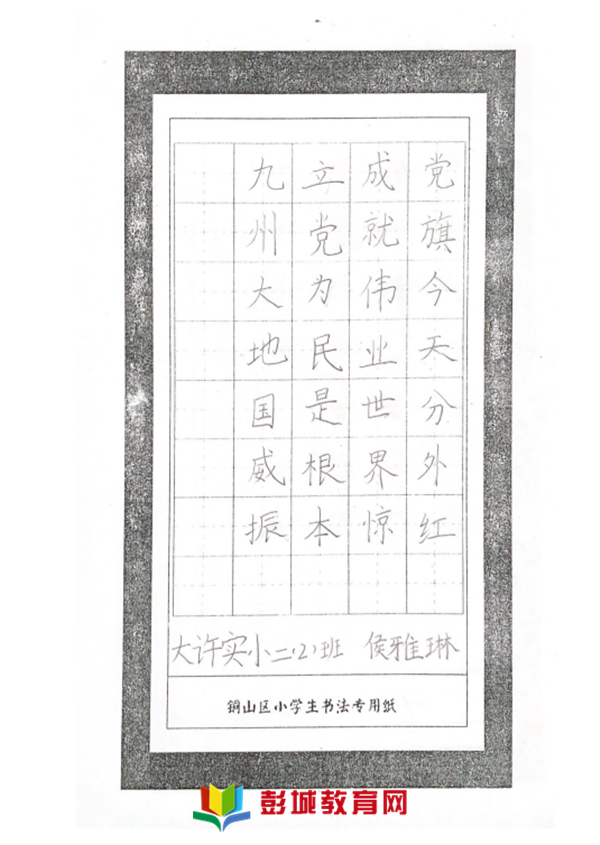 党旗今天分外红
成就伟业世界惊
立党为民是根本
九州大地国威振
大许实小二(2)班 侯雅琳
铜山区小学生书法专用纸
彭城教育网